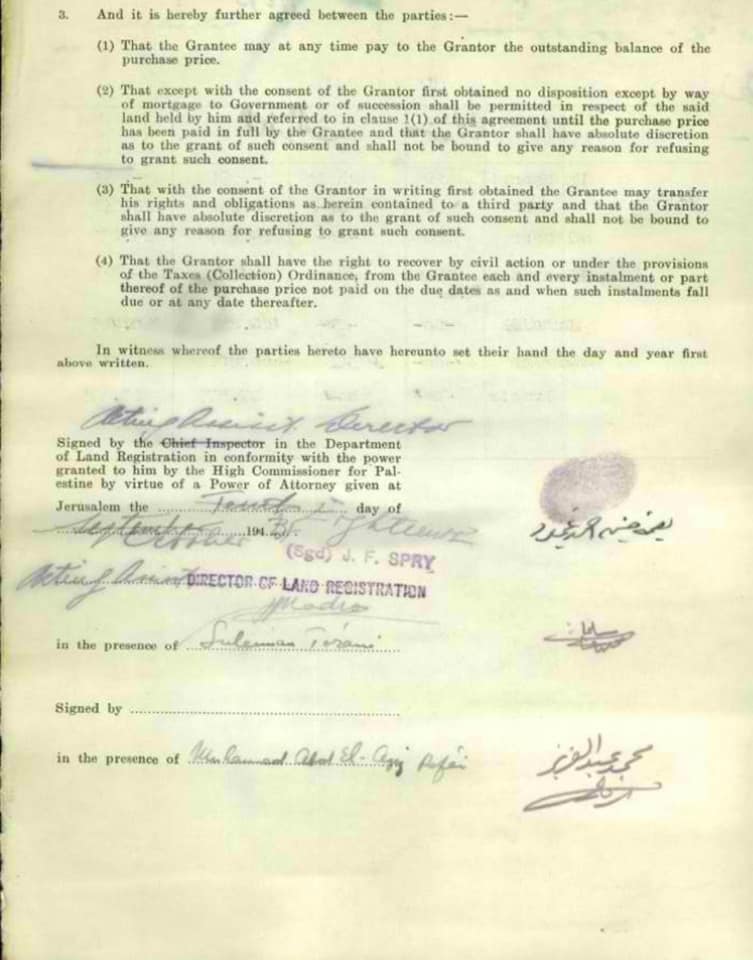 3. And it is hereby further agreed between the parties:—
(1) That the Grantee may at any time pay to the Grantor the outstanding balance of the
purchase price.
(2) That except with the consent of the Grantor first obtained no disposition except by way
of mortgage to Government or of succession shall be permitted in respect of the said
land held by him and referred to in clause 1(1) of this agreement until the purchase price
has been paid in full by the Grantee and that the Grantor shall have absolute discretion
as to the grant of such consent and shall not be bound to give any reason for refusing
to grant such consent.
(3) That with the consent of the Grantor in writing first obtained the Grantee may transfer
his rights and obligations as herein contained to a third party and that the Grantor
shall have absolute discretion as to the grant of such consent and shall not be bound to
give any reason for refusing to grant such consent.
(4) That the Grantor shall have the right to recover by civil action or under the provisions
of the Taxes (Collection) Ordinance, from the Grantee each and every instalment or part
thereof of the purchase price not paid on the due dates as and when such instalments fall
due or at any date thereafter.
In witness whereof the parties hereto have hereunto set their hand the day and year first
above written.
Acting Assist. Director
Signed by the Chief Inspector in the Department
of Land Registration in conformity with the power
granted to him by the High Commissioner for Pal-
estine by virtue of a Power of Attorney given at
Jerusalem the day of
September 194
(Sgd) J. F. SPRY
Acting Assist DIRECTOR OF LAND REGISTRATION
in the presence of Suleiman
Signed by
in the presence of Muhammad Abd El-Aziz
محمد عبد العزيز